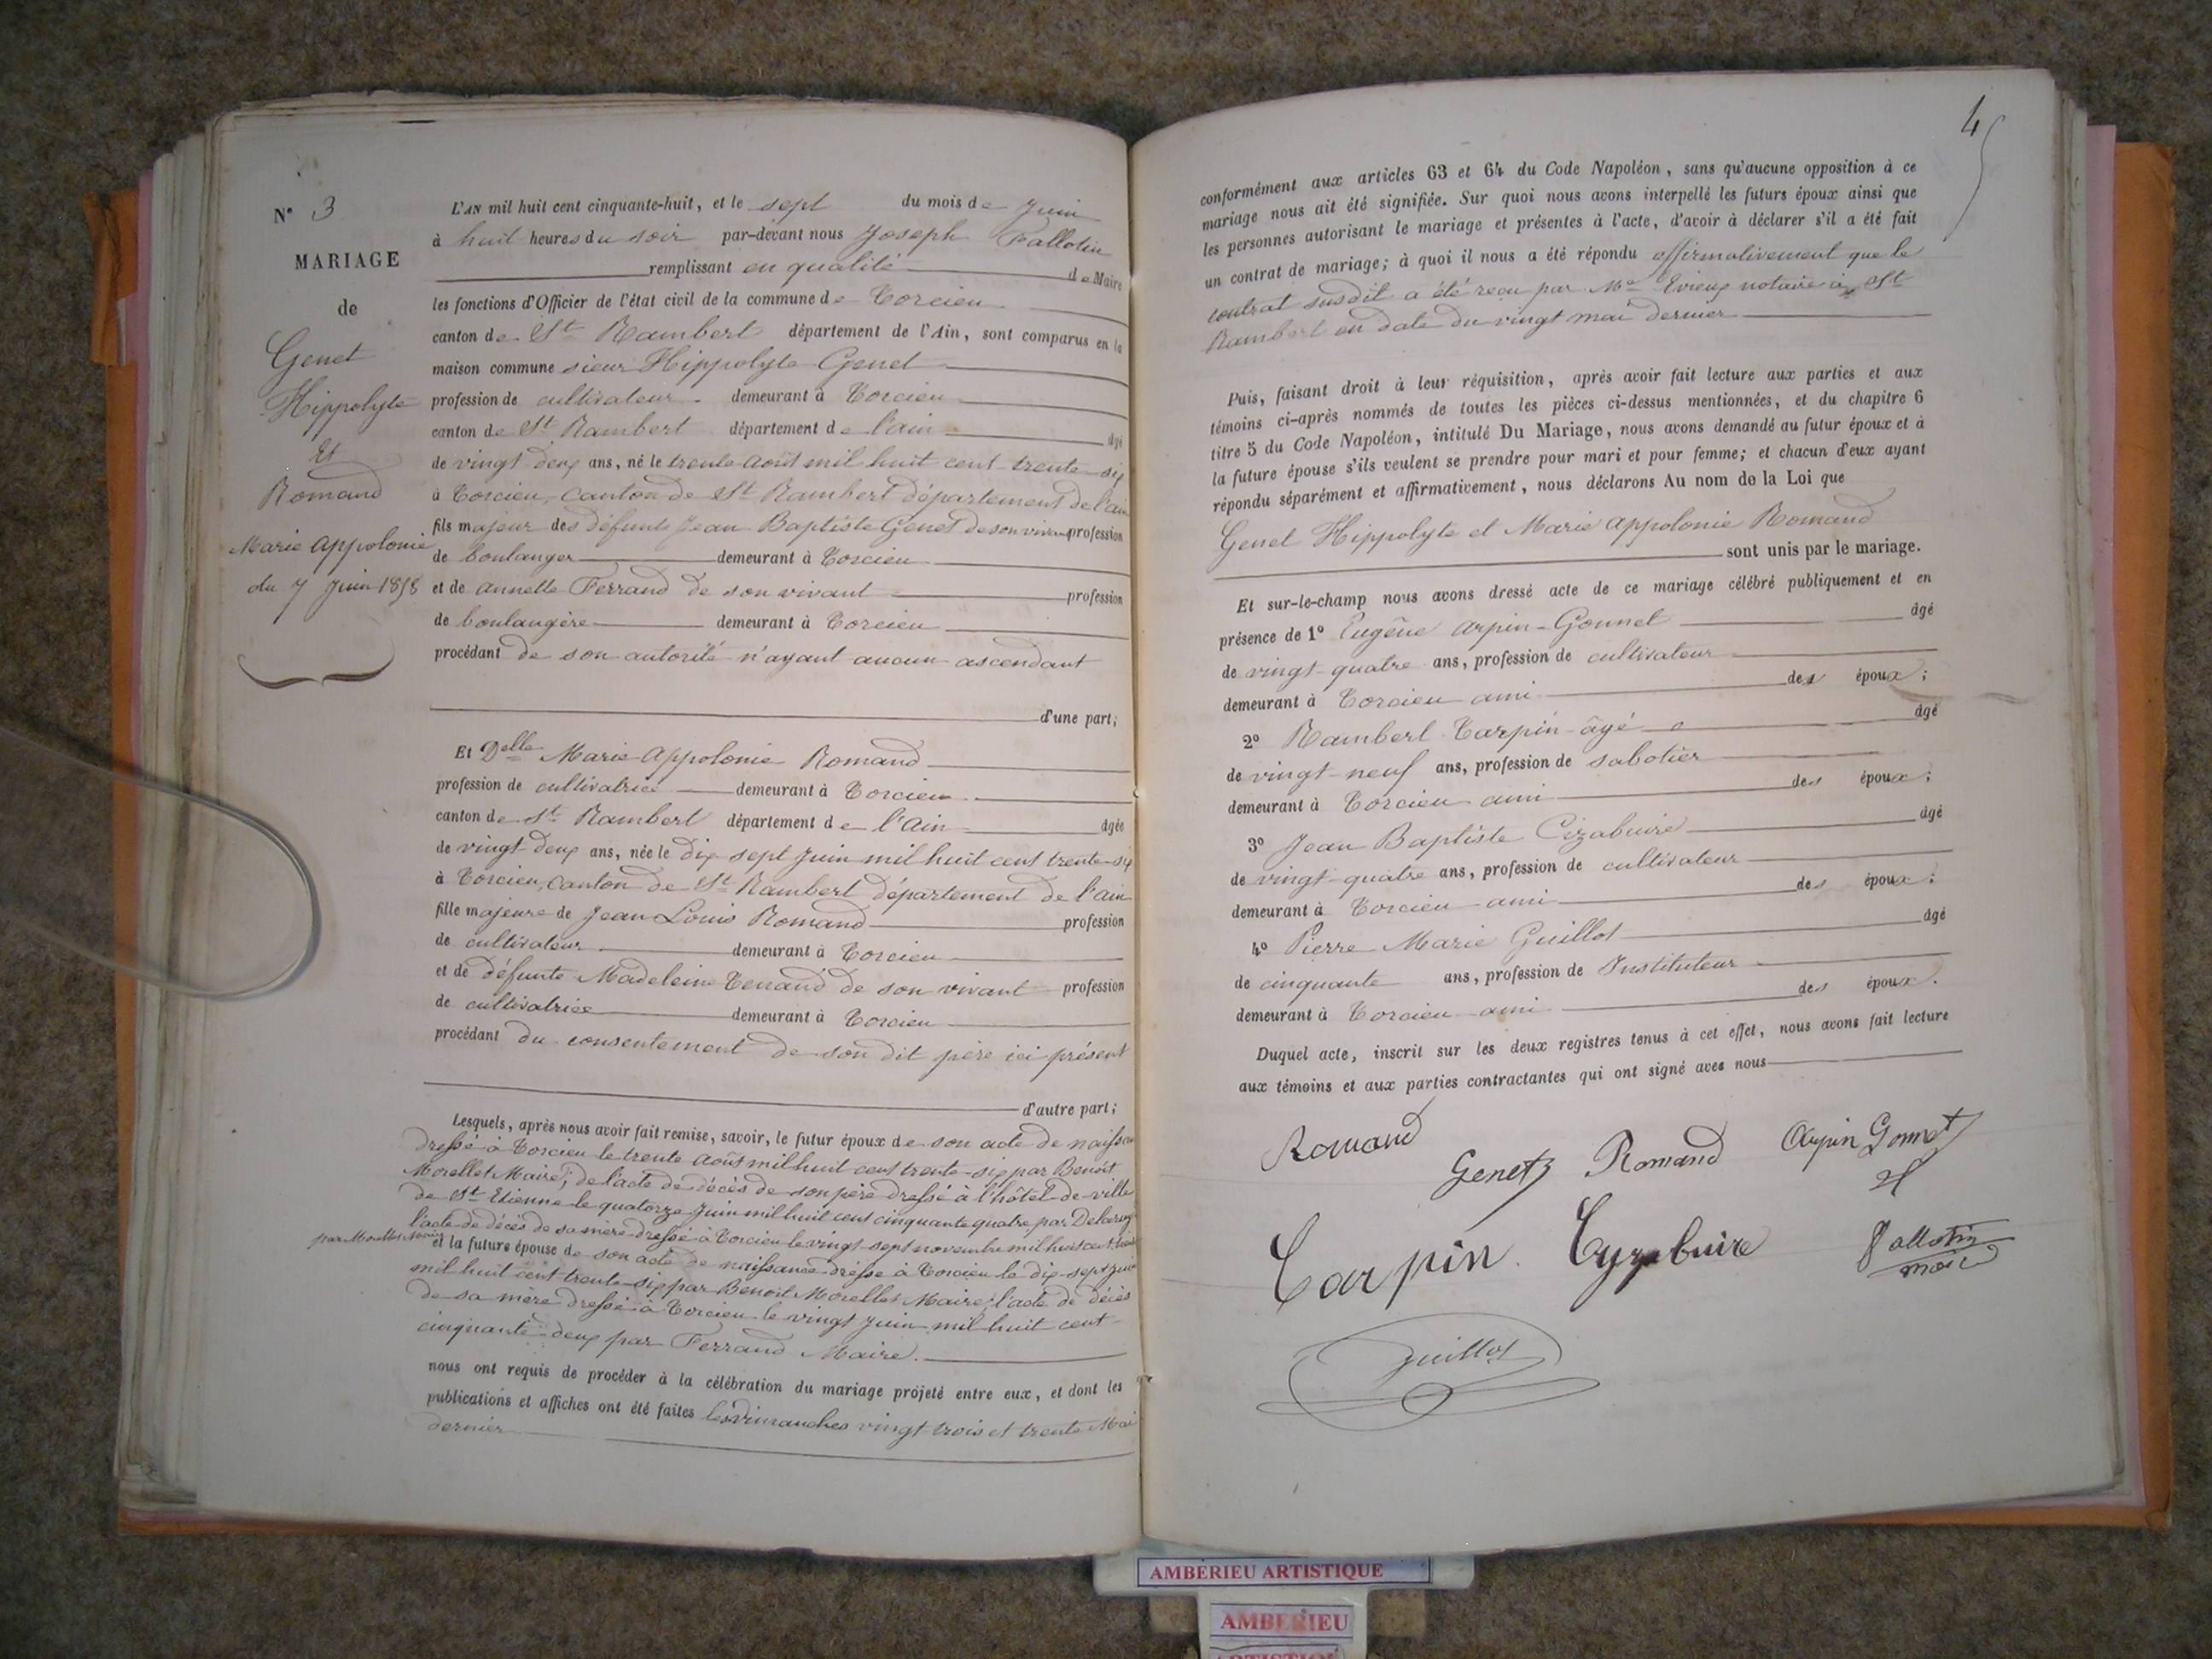 N° 3
MARIAGE
de
Genet
Hippolyte
Et
Romand
Marie Appolonie
du 7 Juin 1858
L'AN mil huit cent cinquante-huit, et le sept du mois de Juin
à huit heures du soir par-devant nous Joseph Fallotin
remplissant en qualité de Maire
les fonctions d'Officier de l'état civil de la commune de Torcieu
canton de St Rambert département de l'Ain, sont comparus en la
maison commune sieur Hippolyte Genet
profession de cultivateur demeurant à Torcieu
canton de St Rambert département de l'ain âgé
de vingt deux ans, né le trente Août mil huit cent trente-six
à Torcieu, canton de St Rambert département de l'ain
fils majeur des défunts Jean Baptiste Genet de son vivant profession
de boulanger demeurant à Torcieu
et de annette Ferrand de son vivant profession
de boulangère demeurant à Torcieu
procédant de son autorité n'ayant aucun ascendant
d'une part;
Et Delle Marie Appolonie Romand
profession de cultivatrice demeurant à Torcieu
canton de St Rambert département de l'Ain âgée
de vingt deux ans, née le dix sept Juin mil huit cent trente-six
à Torcieu, canton de St Rambert département de l'ain
fille majeure de Jean Louis Romand profession
de cultivateur demeurant à Torcieu
et de défunte Madeleine de son vivant profession
de cultivatrice demeurant à Torcieu
procédant du consentement de son dit père ici présent
d'autre part;
Lesquels, après nous avoir fait remise, savoir, le futur époux de son acte de naissan
dressé à Torcieu le trente Août mil huit cent trente-six par Benoit
Morellet Maire; de l'acte de décès de son père dressé à l'hôtel de ville
de St Etienne le quatorze Juin mil huit cent cinquante quatre par
l'acte de décès de sa mère dressé à Torcieu le vingt-sept novembre mil huit cent
par Morellet Maire et la future épouse de son acte de naissance dressé à Torcieu le dix-sept Juin
mil huit cent trente-six par Benoit Morellet Maire; l'acte de décès
de sa mère dressé à Torcieu le vingt Juin mil huit cent
cinquante-deux par Ferrand Maire.
nous ont requis de procéder à la célébration du mariage projeté entre eux, et dont les
publications et affiches ont été faites les dimanches vingt trois et trente Mai
dernier
4
conformément aux articles 63 et 64 du Code Napoléon, sans qu'aucune opposition à ce
mariage nous ait été signifiée. Sur quoi nous avons interpellé les futurs époux ainsi que
les personnes autorisant le mariage et présentes à l'acte, d'avoir à déclarer s'il a été fait
un contrat de mariage; à quoi il nous a été répondu affirmativement que le
contrat susdit a été reçu par Me Evieux notaire à St
Rambert en date du vingt mai dernier
Puis, faisant droit à leur réquisition, après avoir fait lecture aux parties et aux
témoins ci-après nommés de toutes les pièces ci-dessus mentionnées, et du chapitre 6
titre 5 du Code Napoléon, intitulé Du Mariage, nous avons demandé au futur époux et à
la future épouse s'ils veulent se prendre pour mari et pour femme; et chacun d'eux ayant
répondu séparément et affirmativement, nous déclarons Au nom de la Loi que
Genet Hippolyte et Marie Appolonie Romand
sont unis par le mariage.
Et sur-le-champ nous avons dressé acte de ce mariage célébré publiquement et en
présence de 1° Eugêne Arpin-Gonnet âgé
de vingt-quatre ans, profession de cultivateur
demeurant à Torcieu ami des époux;
2° Rambert Tarpin âgé âgé
de vingt-neuf ans, profession de sabotier
demeurant à Torcieu ami des époux;
3° Jean Baptiste Cizabuire âgé
de vingt-quatre ans, profession de cultivateur
demeurant à Torcieu ami des époux;
4° Pierre Marie Guillot âgé
de cinquante ans, profession de Instituteur
demeurant à Torcieu ami des époux.
Duquel acte, inscrit sur les deux registres tenus à cet effet, nous avons fait lecture
aux témoins et aux parties contractantes qui ont signé avec nous
Romand Genet Romand Arpin Gonnet
Tarpin Cyzabuire Fallotin
maire
Guillot
AMBÉRIEU ARTISTIQUE
AMBERIEU
ARTISTIQUE